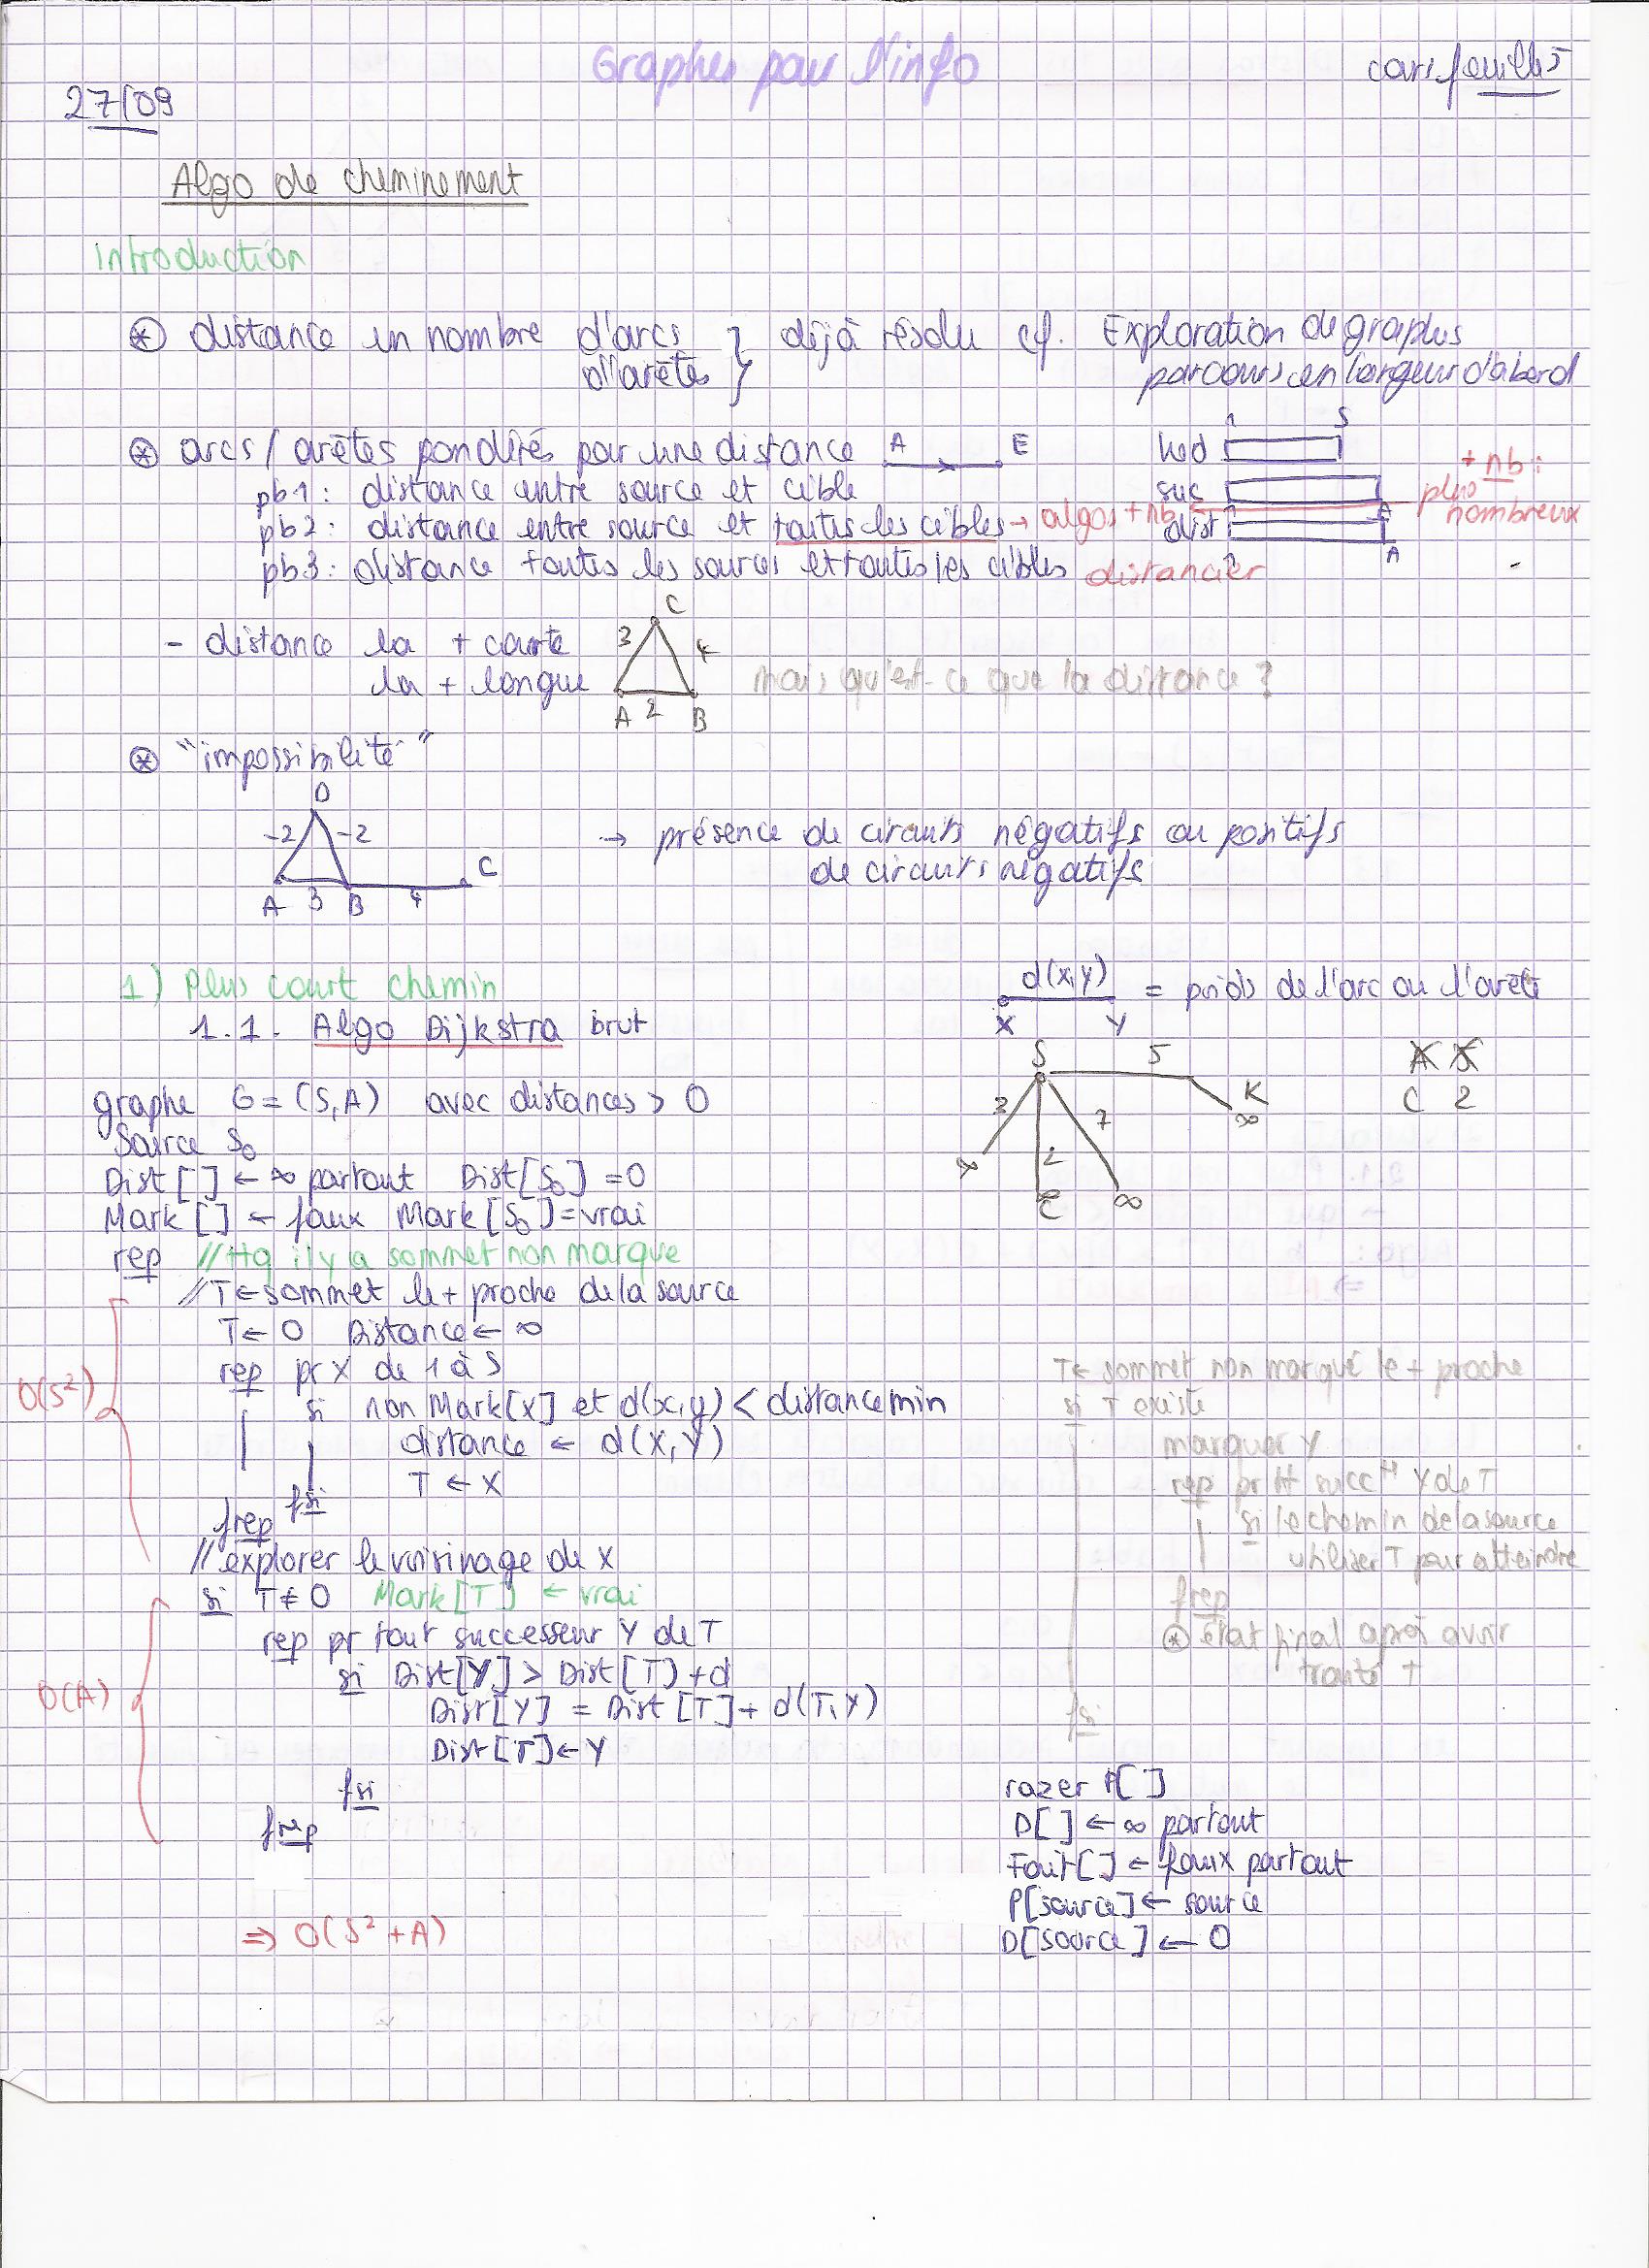 Graphes pour l'info
cours feuille 5
27/09
Algo de cheminement
Introduction
⊛ distance en nombre d'arcs } déjà résolu cf. Exploration de graphes
d'arêtes } parcours en largeur d'abord
⊛ arcs / arêtes pondérés par une distance A E
pb1 : distance entre source et cible
pb2 : distance entre source et toutes les cibles → algos + nb
pb3 : distance toutes les sources et toutes les cibles distancier
1 S
hed
suc
dist
A
1 A
+ nb :
plus
nombreux
- distance la + courte
la + longue
C
3 4
A 2 B
mais qu'est-ce que la distance ?
⊛ "impossibilité"
D
-2 -2
C
A 3 B 4
→ présence de circuits négatifs ou positifs
de circuits négatifs
1) Plus court chemin
1.1. Algo Dijkstra brut
d(x,y) = poids de l'arc ou l'arête
X Y
S 5
3 7 K
∞
2
C ∞
C 2
graphe G = (S,A) avec distances > 0
Source S0
Dist[ ] ← ∞ partout Dist[S0] = 0
Mark[ ] ← faux Mark[S0] = vrai
rep // tq il y a sommet non marque
// T ← sommet le + proche de la source
T ← 0 Distance ← ∞
rep pr X de 1 à S
si non Mark[x] et d(x,y) < distance min
distance ← d(X,Y)
T ← X
fsi
frep
O(S²)
// explorer le voisinage de X
si T ≠ 0 Mark[T] ← vrai
rep pr tout successeur Y de T
si Dist[Y] > Dist[T] + d
Dist[Y] = Dist[T] + d(T,Y)
Dist[T] ← Y
fsi
frep
O(A)
⇒ O(S² + A)
T ← sommet non marqué le + proche
si T existe
marquer Y
rep pr tt succ Y de T
si le chemin de la source
utiliser T pour atteindre
frep
⊛ état final après avoir
traité T
fsi
razer P[ ]
D[ ] ← ∞ partout
Fait[ ] ← faux partout
P[source] ← source
D[source] ← 0